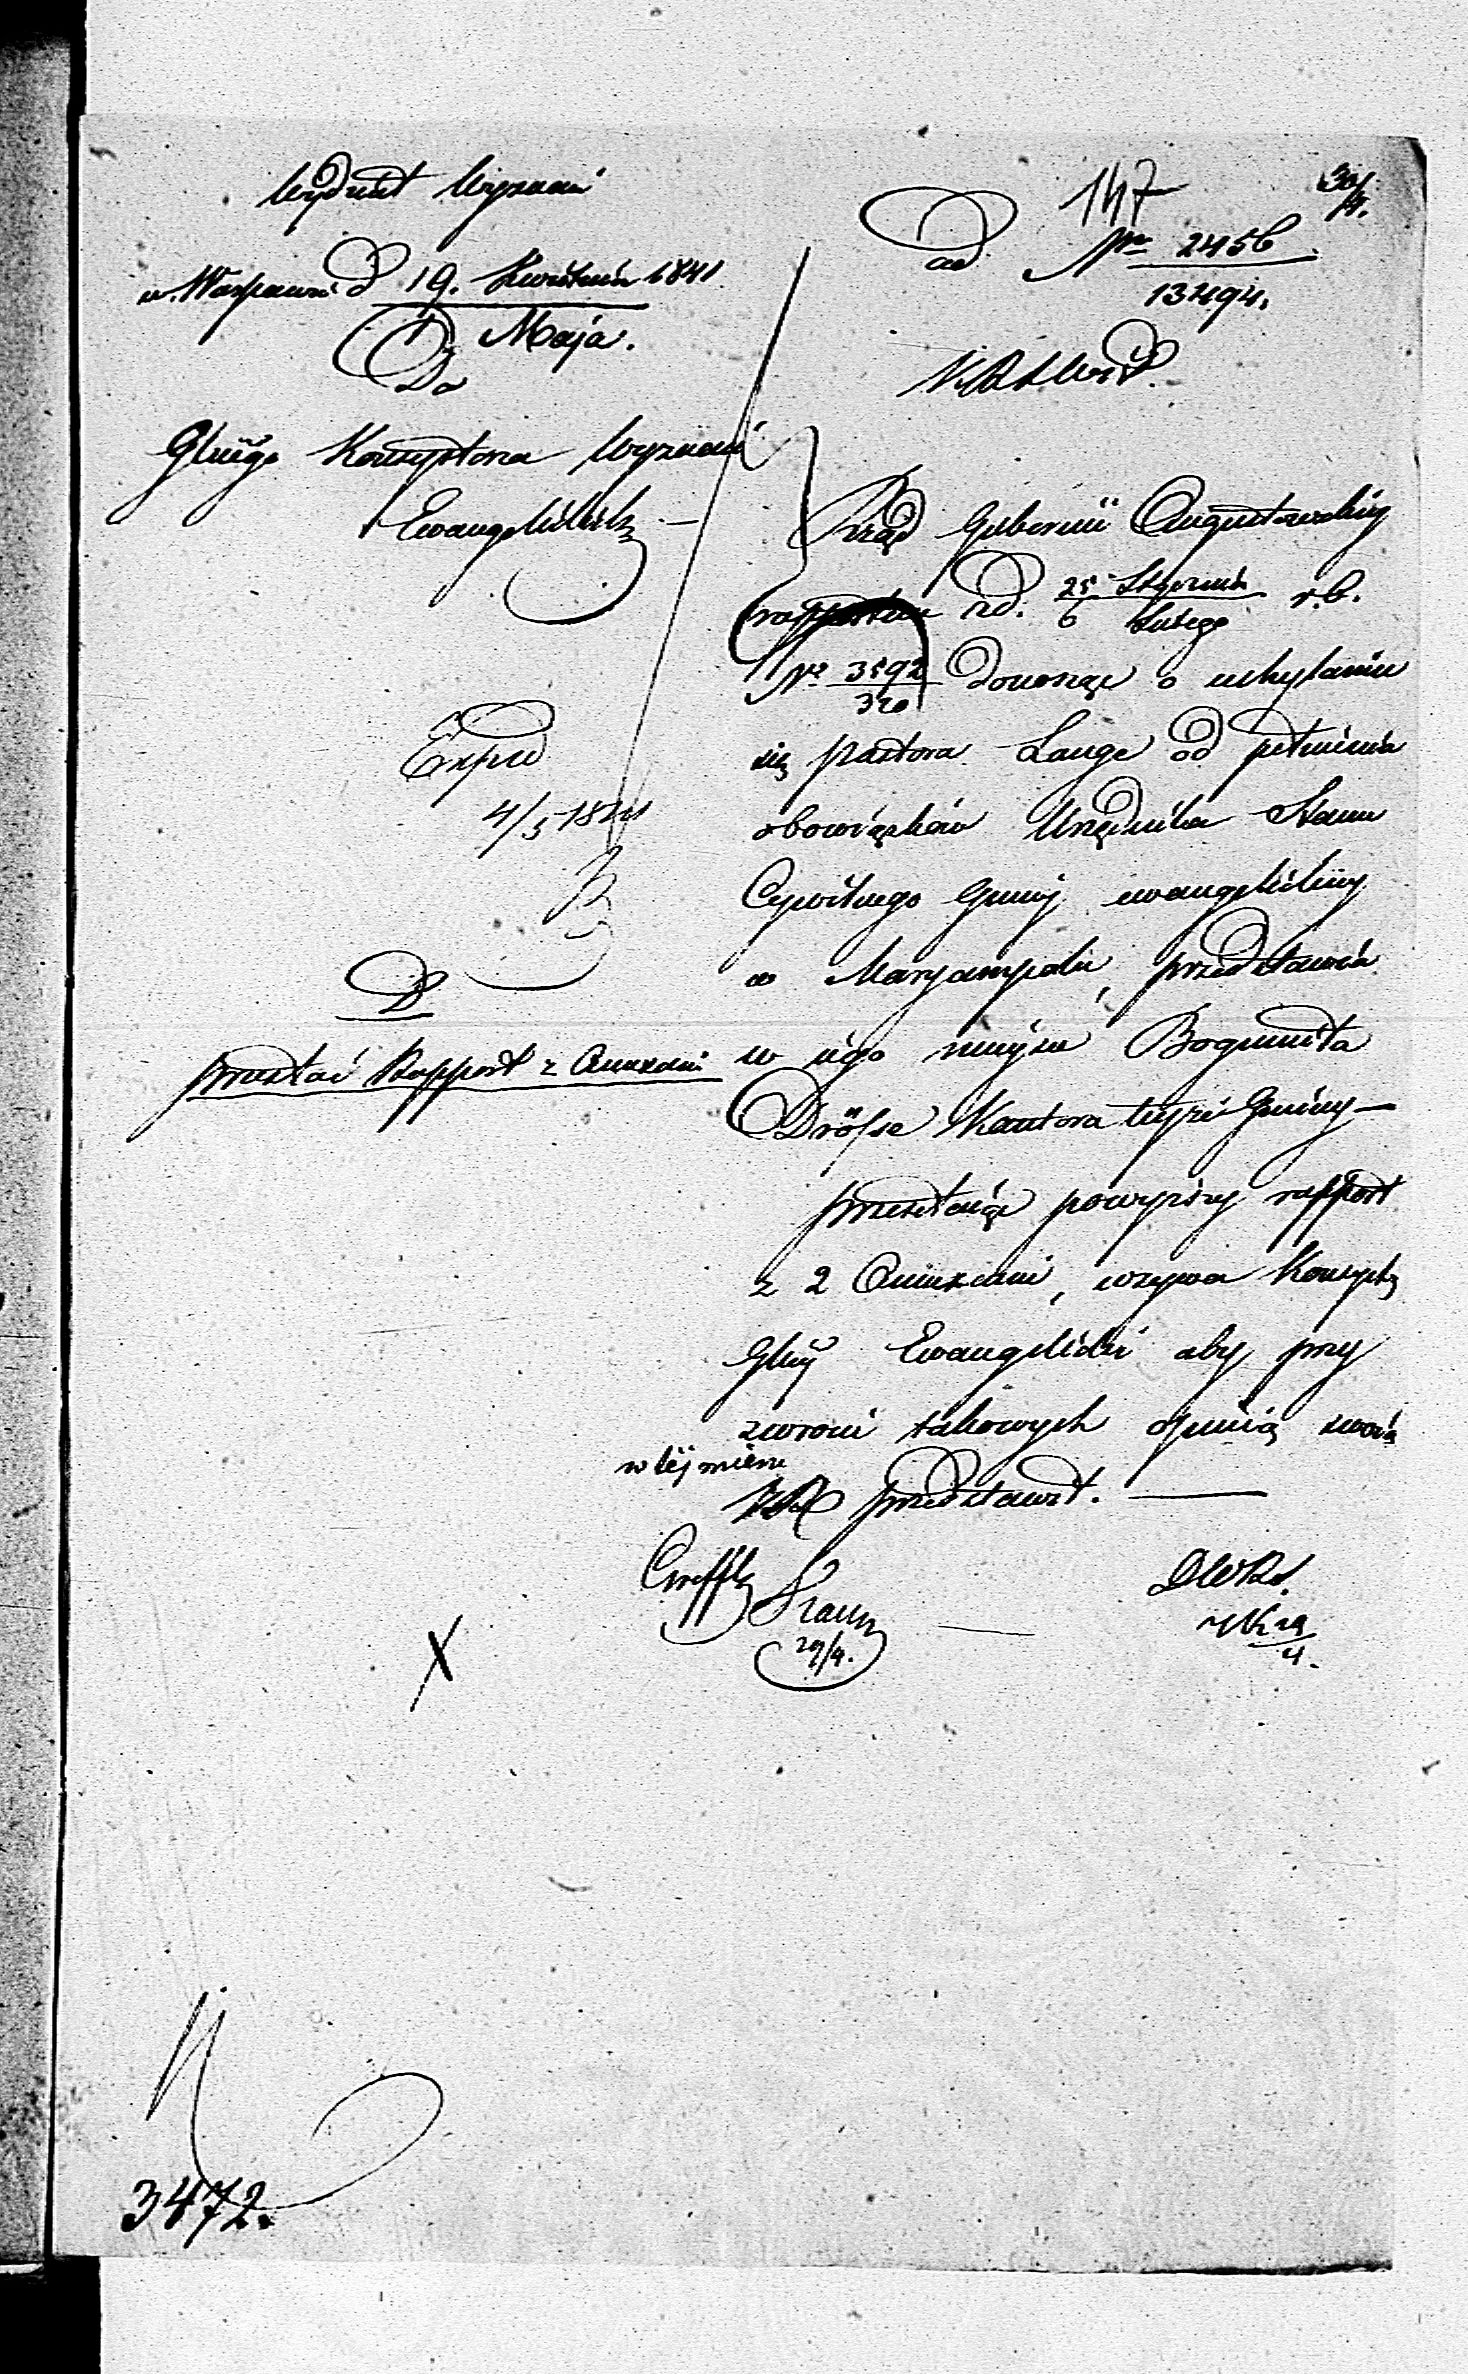 Wydział Wyznań
w Warszawie d 19. Kwietnia 1841
1 Maja.
Do
Głłnego Konsystorza Wyznań
Ewangelickich
Exped
4/5 1841
D
przesłać Rapport z Annexami
147
30/4.
ad Nr 2456
13494.
Rząd Gubernii Augustowskiej
rapportem z d. 25 Stycznia r.b.
6 Lutego
Nr 3592 donosząc o uchylaniu
320
się pastora Lange od pełnienia
obowiązków Urzędnika Stanu
Cywilnego Gminy ewangelickiey
w Maryampolu, przedstawia
w iego mieysce Bogumiła
Drösse Kantora teyże Gminy —
przesyłaiąc powyższy rapport
z 2 Annexami, wzywa Konsystz
Głny Ewangelicki aby przy
zwrocie takowych opinią swoią
w tej mierze
KR przedstawił. —
29/4.
29
4.
X
3472.